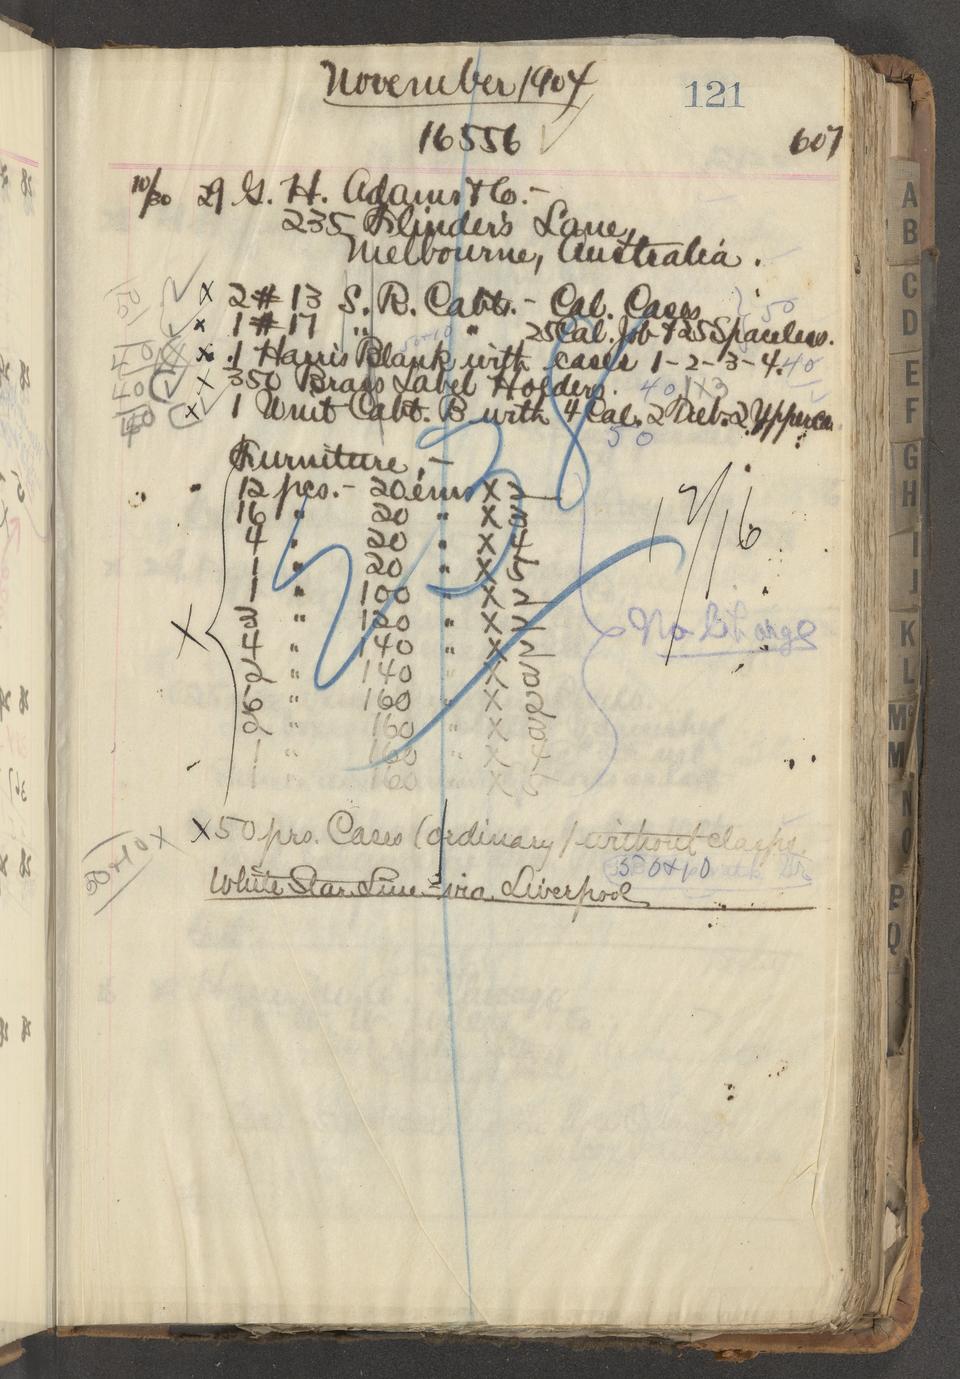 November 1904
121
16556
607
10/30 29 G. H. Adams & Co. -
235 Flinder's Lane,
Melbourne, Australia.
x 2 # 13 S. R. Cabts. - Cal. Cases 50
x 1 # 17 " " 25 Cal. Job & 25 Spaceless.
x 1 Harris Blank with cases 1-2-3-4. 40
x 350 Brass Label Holders. 40 1x3
x 1 Unit Cabt. B with 4 Cal. 2 2
50
Furniture, -
12 pcs. - 20 ems x 2
16 " 20 " x 3
4 " 20 " x 4
1 " 20 " x 5
1 " 100 " x 2
" 120 " x 2
4 " 140 " x 2
2 " 140 " x
5 " 160 " x 2
2 " 160 " x
1 " 160 " x 4
1 " 160 " x 5
X
12/16
No Charge
x 50 prs. Cases (ordinary) without clasps.
50 & 10
50 & 10 x
White Star Line - via. Liverpool
A
B
C
D
E
F
G
H
I
J
K
L
Mc
M
N
O
P
Q